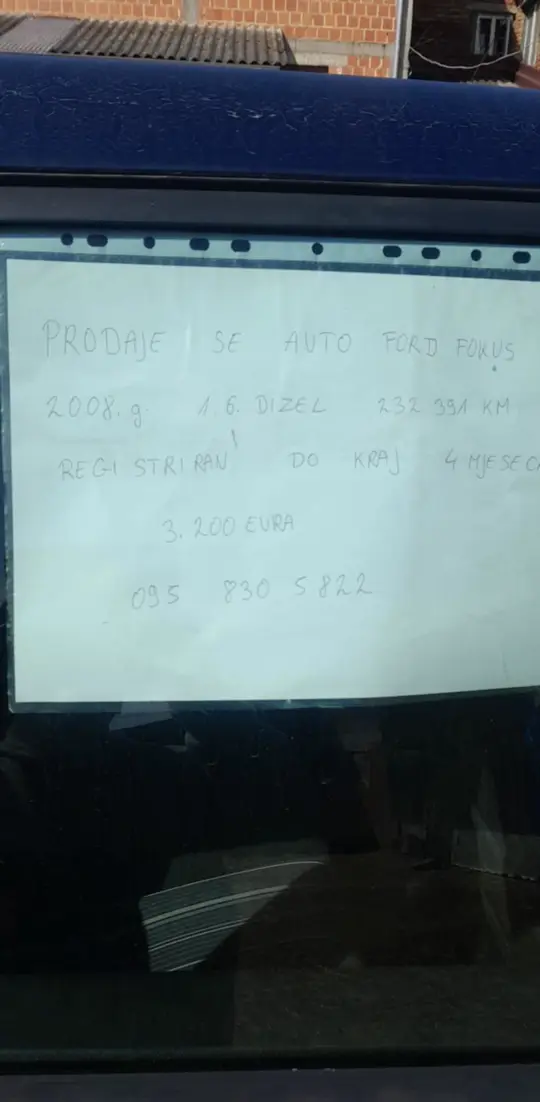 PRODAJE SE AUTO FORD FOKUS
2008.g. 1.6. DIZEL 232 391 KM
REGISTRIRAN DO KRAJ 4 MJESECA
3.200 EURA
095 830 5822